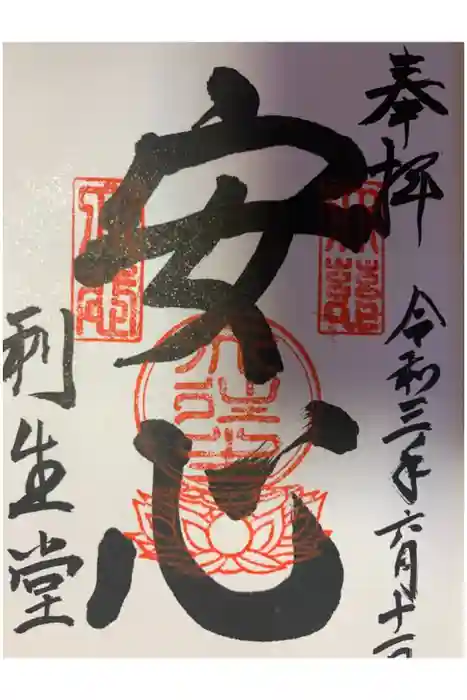 奉拝
令和三年六月十一日
安心
利生堂